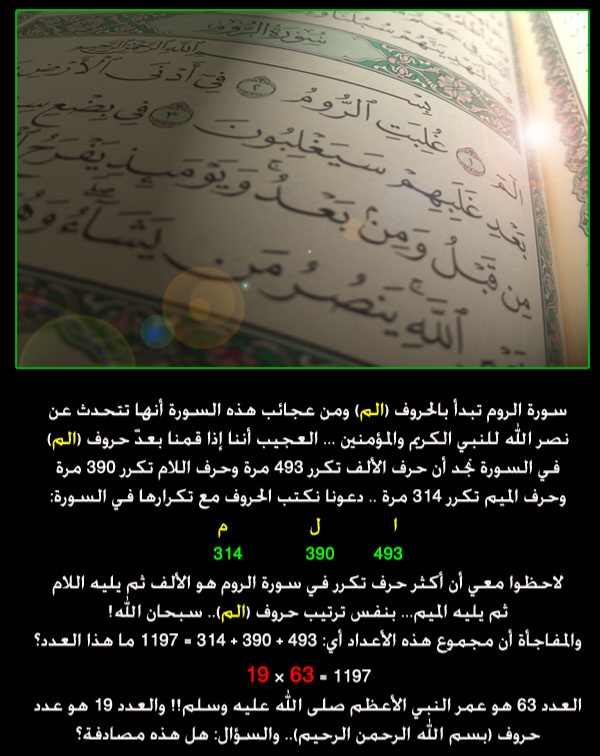 سورة الروم
بسم الله الرحمن الرحيم
الٓمٓ ١ غُلِبَتِ ٱلرُّومُ ٢ فِىٓ أَدْنَى ٱلْأَرْضِ
بَعْدِ غَلَبِهِمْ سَيَغْلِبُونَ ٣ فِى بِضْعِ
مِن قَبْلُ وَمِنۢ بَعْدُ وَيَوْمَئِذٍ يَفْرَحُ
ٱللَّهِ يَنصُرُ مَن يَشَآءُ
سورة الروم تبدأ بالحروف (الم) ومن عجائب هذه السورة أنها تتحدث عن
نصر الله للنبي الكريم والمؤمنين ... العجيب أننا إذا قمنا بعدّ حروف (الم)
في السورة نجد أن حرف الألف تكرر 493 مرة وحرف اللام تكرر 390 مرة
وحرف الميم تكرر 314 مرة .. دعونا نكتب الحروف مع تكرارها في السورة:
ا ل م
493 390 314
لاحظوا معي أن أكثر حرف تكرر في سورة الروم هو الألف ثم يليه اللام
ثم يليه الميم... بنفس ترتيب حروف (الم).. سبحان الله!
والمفاجأة أن مجموع هذه الأعداد أي: 493 + 390 + 314 = 1197 ما هذا العدد؟
1197 = 63 × 19
العدد 63 هو عمر النبي الأعظم صلى الله عليه وسلم!! والعدد 19 هو عدد
حروف (بسم الله الرحمن الرحيم).. والسؤال: هل هذه مصادفة؟